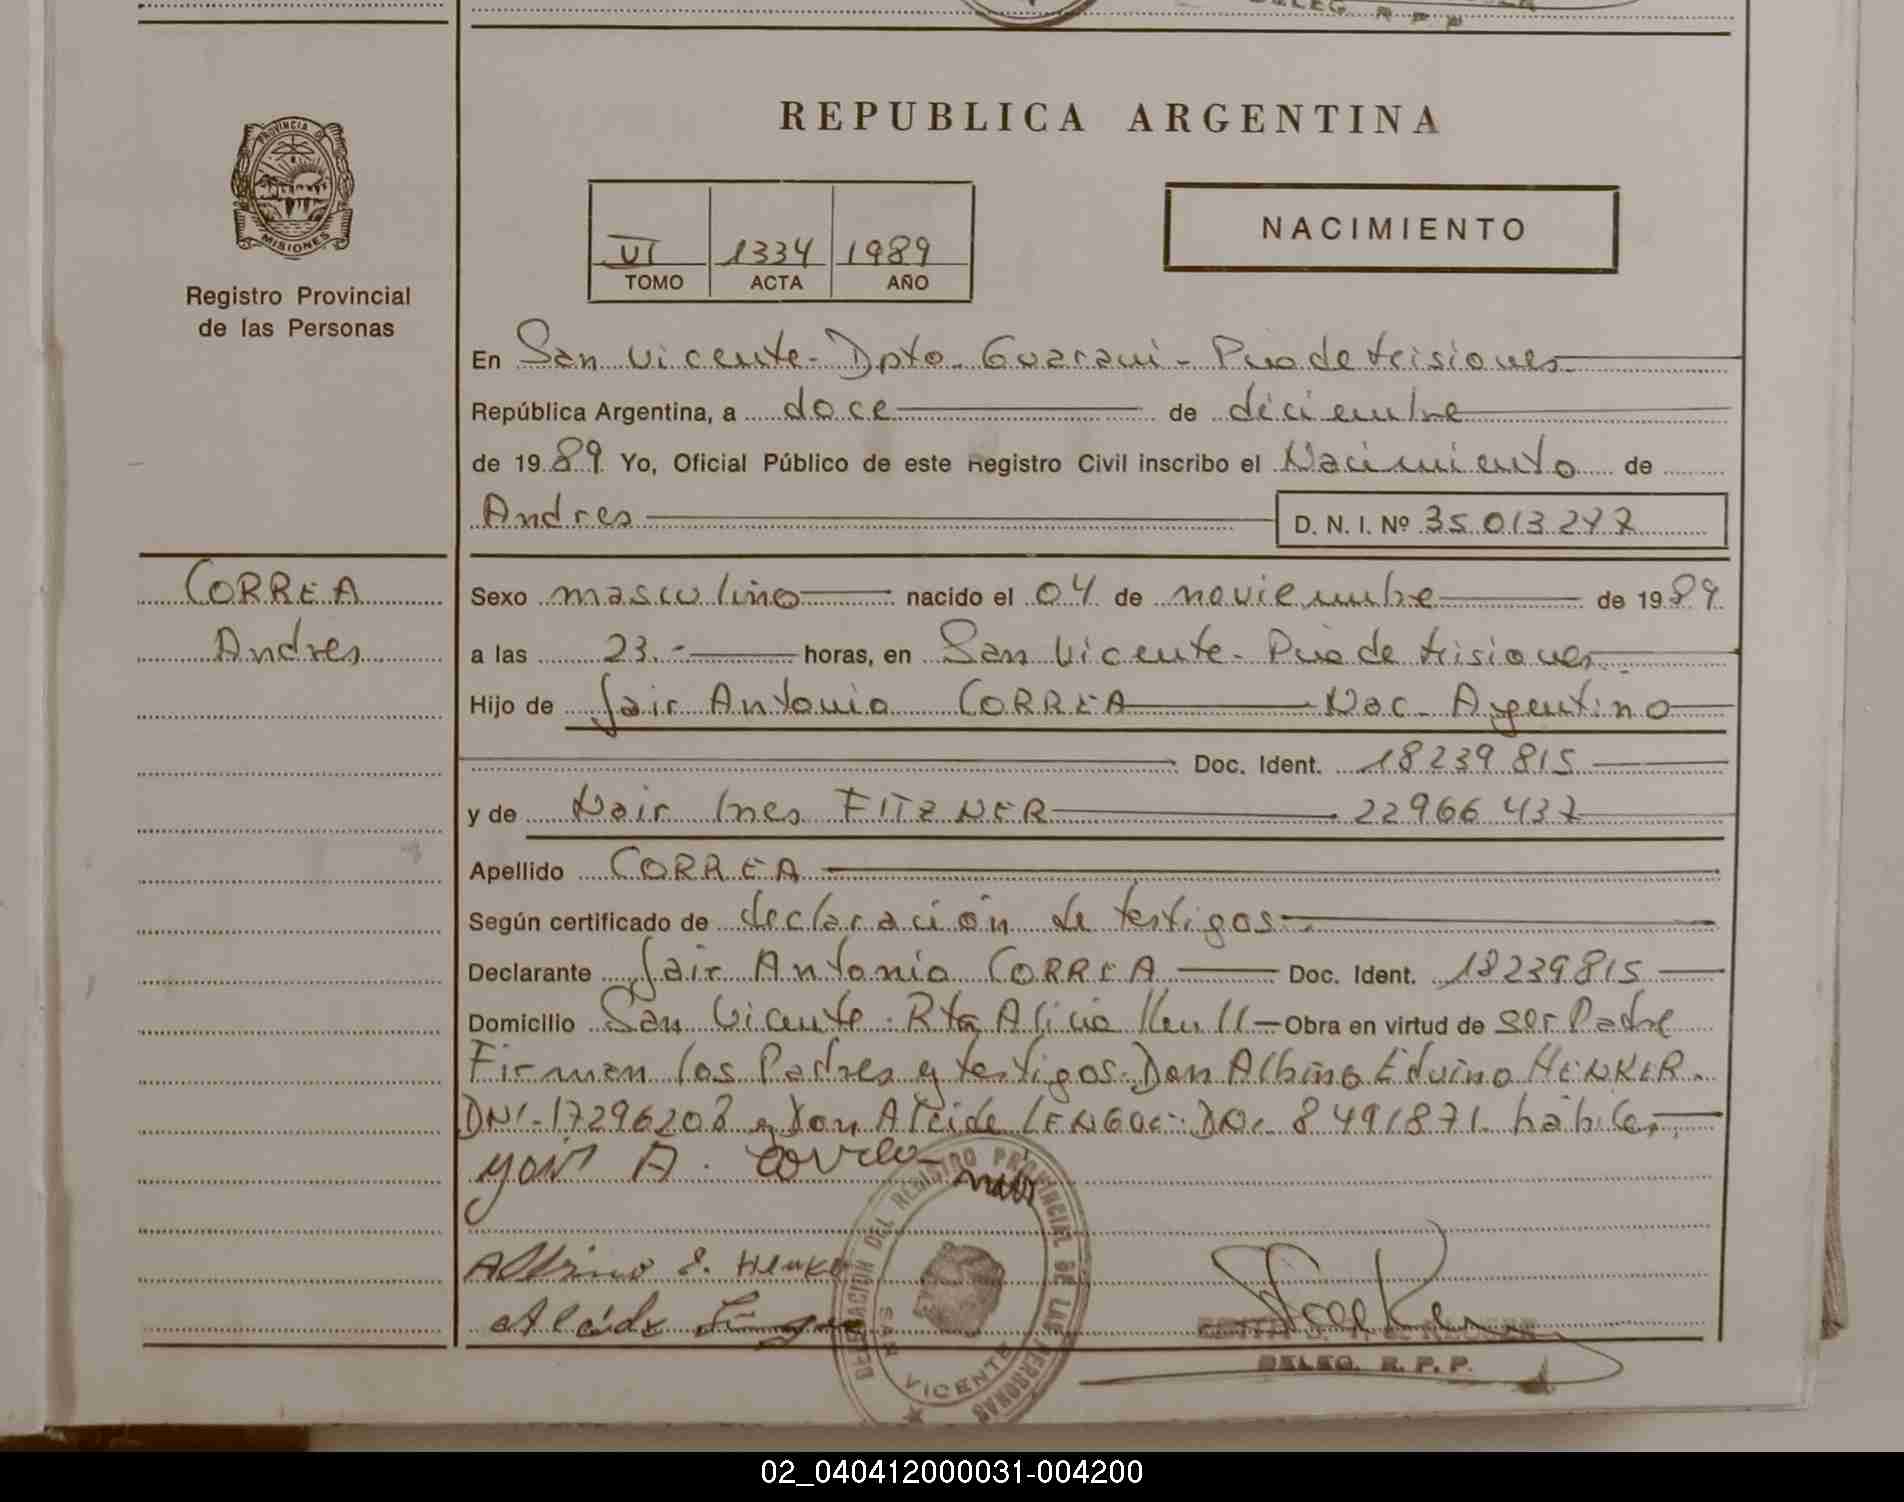 REPUBLICA ARGENTINA
PROVINCIA DE
MISIONES
Registro Provincial
de las Personas
VI 1334 1989
TOMO ACTA AÑO
NACIMIENTO
En San Vicente - Dpto. Guarani - Pcia de Misiones
República Argentina, a doce de diciembre
de 1989 Yo, Oficial Público de este Registro Civil inscribo el Nacimiento de
Andres D. N. I. Nº 35.013.277
CORREA
Andres
Sexo masculino nacido el 04 de noviembre de 1989
a las 23.- horas, en San Vicente - Pcia de Misiones
Hijo de Jair Antonio CORREA Nac. Argentino
Doc. Ident. 18239815
y de Nair Ines FITZNER 22966437
Apellido CORREA
Según certificado de declaración de testigos
Declarante Jair Antonio CORREA Doc. Ident. 18239815
Domicilio San Vicente - Rta Alicia Obra en virtud de ser Padre
Firman los Padres y testigos. Don Albino Eduino HENKER -
DNI - 17296203 y Don Alcide DNI 8491871 hábiles
A. Correa
Albino E. Henker
Alcide
DELEGACION DEL REGISTRO PROVINCIAL DE LAS PERSONAS
SAN VICENTE
DELEG. R. P. P.
02_040412000031-004200